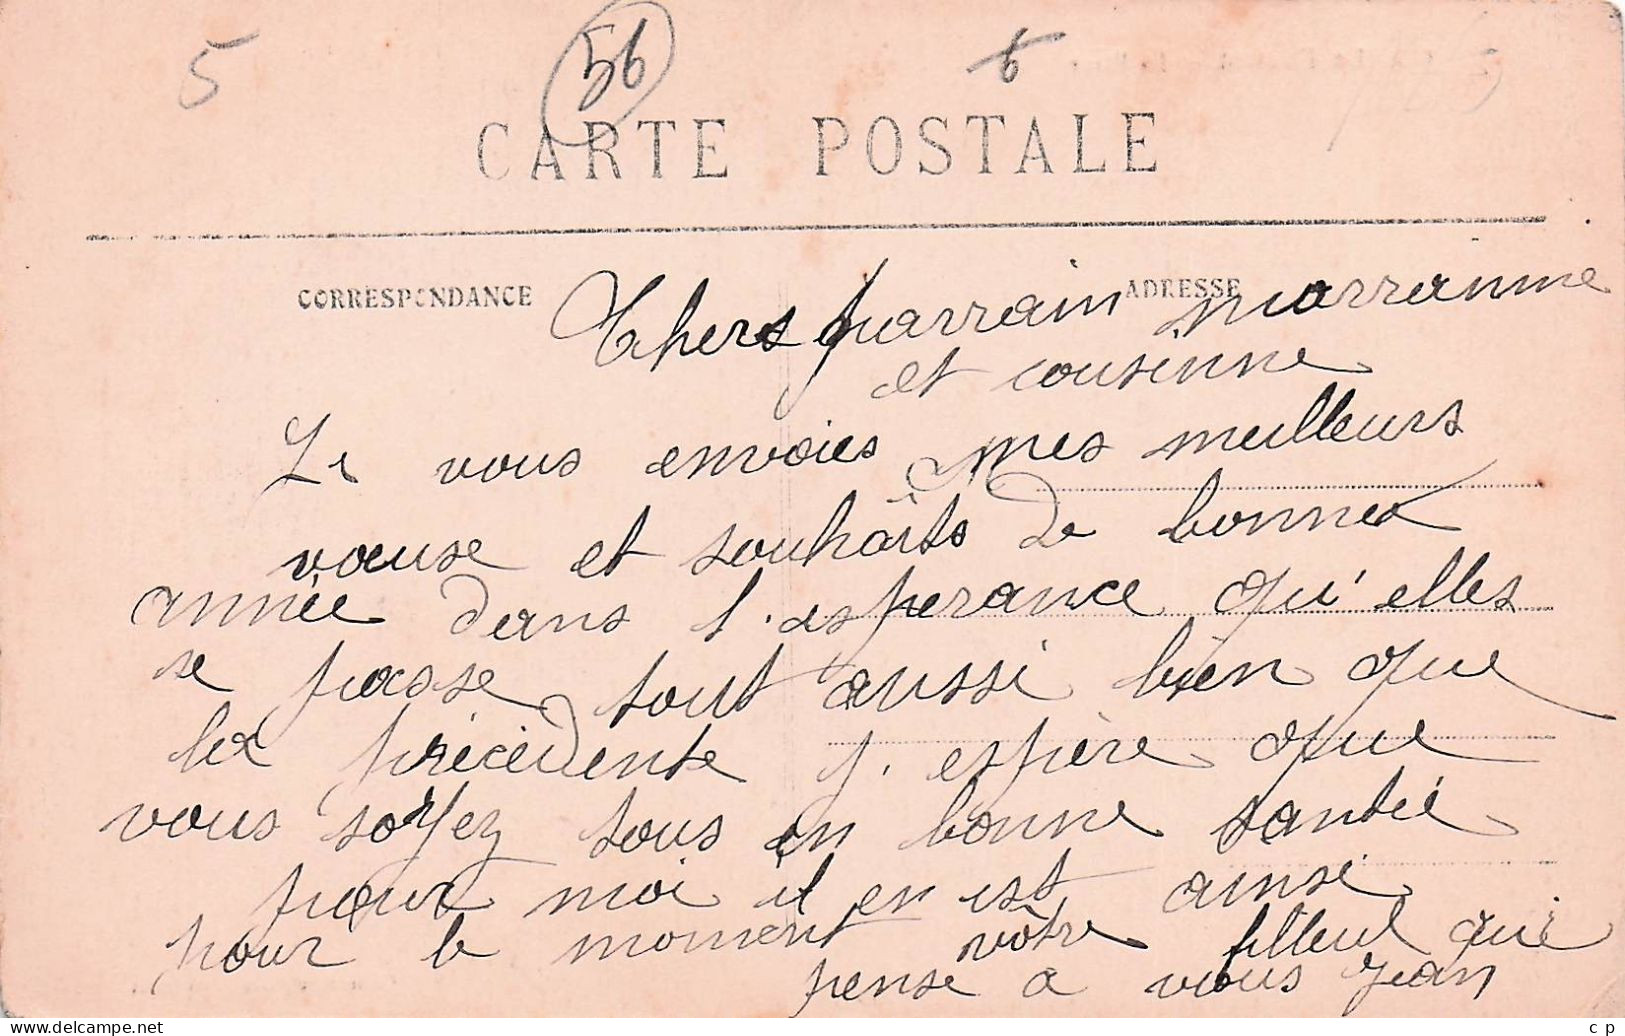 5 56 6
CARTE POSTALE
CORRESPONDANCE ADRESSE
Chers parrain marranne
et cousinne
Je vous envoies mes meilleurs
voeuse et souhaits de bonnes
année dans l'esperance qu'elles
se passe tout aussi bien que
la précédente j'espère que
vous soyez tous en bonne santée
pour moi il en est ainsi
pour le moment votre filleul qui
pense a vous jean
delcampe.net
c p